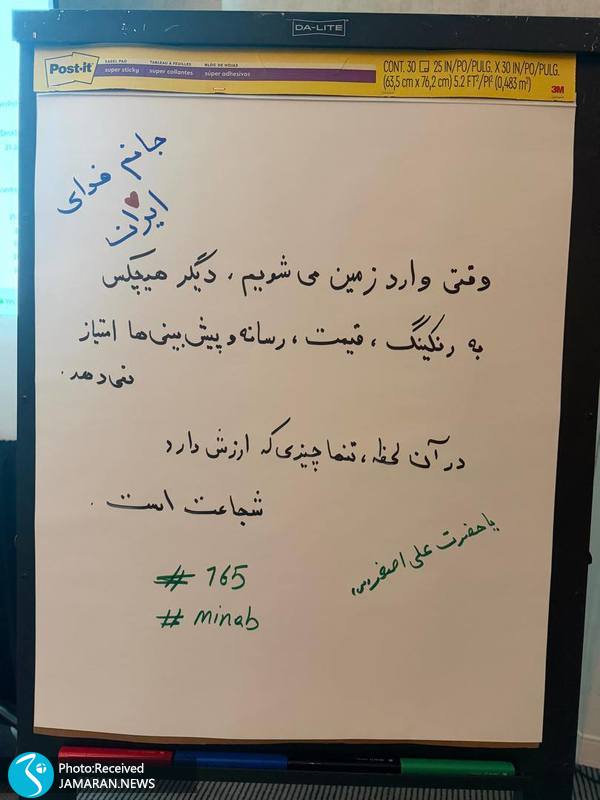 DA-LITE
Post-it
EASEL PAD
super sticky
TABLEAU À FEUILLES
super collantes
BLOC DE HOJAS
súper adhesivos
CONT. 30 25 IN/PO/PULG. X 30 IN/PO/PULG.
(63,5 cm x 76,2 cm) 5.2 FT²/PI² (0,483 m²)
3M
جانم فدای
ایران
وقتی وارد زمین می شویم، دیگر هیچکس
به رنکینگ، قیمت، رسانه و پیش بینی ها امتیاز
نمی دهد.
در آن لحظه، تنها چیزی که ارزش دارد
شجاعت است.
یا حضرت علی اصغر (س)
# 165
# minab
Photo:Received
JAMARAN.NEWS